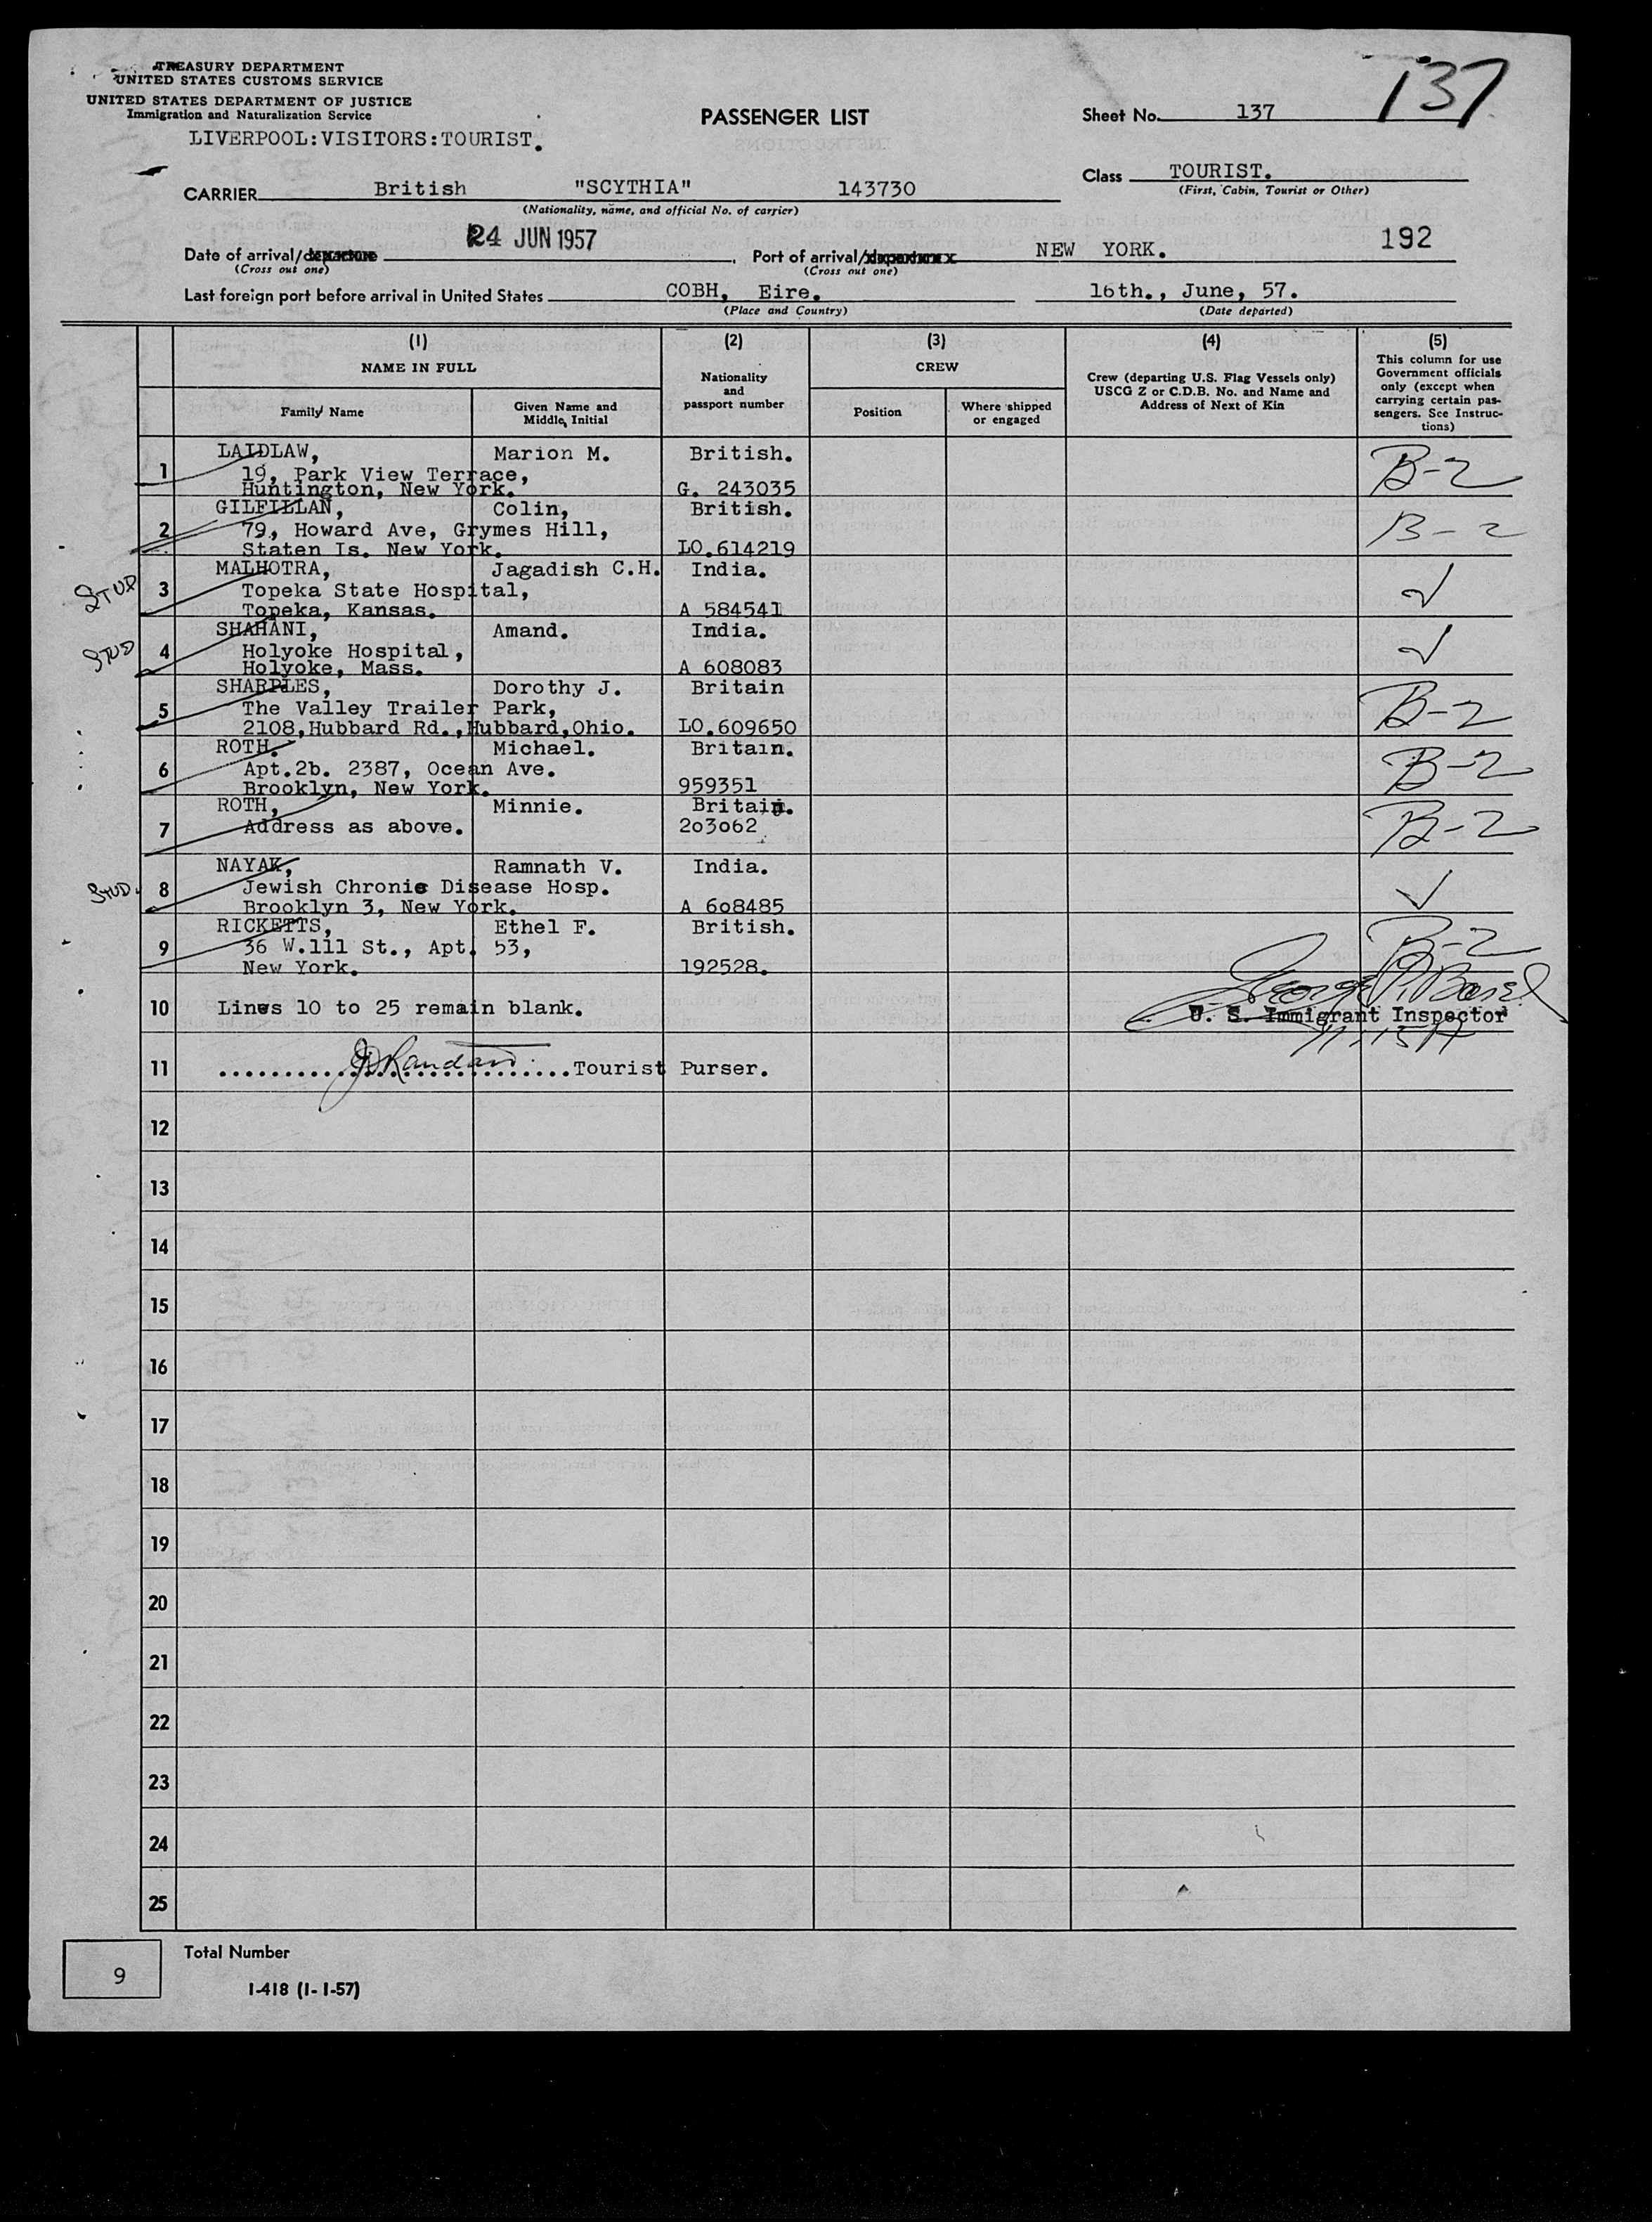 TREASURY DEPARTMENT
UNITED STATES CUSTOMS SERVICE
UNITED STATES DEPARTMENT OF JUSTICE
Immigration and Naturalization Service
LIVERPOOL:VISITORS:TOURIST.
PASSENGER LIST
Sheet No. 137
137
Class TOURIST.
(First, Cabin, Tourist or Other)
CARRIER British "SCYTHIA" 143730
(Nationality, name, and official No. of carrier)
Date of arrival/departure 24 JUN 1957, Port of arrival/departure NEW YORK. 192
(Cross out one) (Cross out one)
Last foreign port before arrival in United States COBH, Eire. 16th., June, 57.
(Place and Country) (Date departed)
(1) (2) (3) (4) (5)
NAME IN FULL
Family Name
Given Name and Middle Initial
Nationality and passport number
CREW
Position
Where shipped or engaged
Crew (departing U.S. Flag Vessels only)
USCG Z or C.D.B. No. and Name and
Address of Next of Kin
This column for use
Government officials
only (except when
carrying certain pas-
sengers. See Instruc-
tions)
1 LAIDLAW, Marion M. British. B-2
19, Park View Terrace,
Huntington, New York. G. 243035
2 GILFILLAN, Colin, British. B-2
79, Howard Ave, Grymes Hill,
Staten Is. New York. LO.614219
STUD 3 MALHOTRA, Jagadish C.H. India. ✓
Topeka State Hospital,
Topeka, Kansas. A 584541
STUD 4 SHAHANI, Amand. India. ✓
Holyoke Hospital,
Holyoke, Mass. A 608083
5 SHARPLES, Dorothy J. Britain B-2
The Valley Trailer Park,
2108,Hubbard Rd.,Hubbard,Ohio. LO.609650
6 ROTH. Michael. Britain. B-2
Apt.2b. 2387, Ocean Ave.
Brooklyn, New York. 959351
7 ROTH, Minnie. Britain. B-2
Address as above. 203062
STUD. 8 NAYAK, Ramnath V. India. ✓
Jewish Chronic Disease Hosp.
Brooklyn 3, New York. A 608485
9 RICKETTS, Ethel F. British. B-2
36 W.111 St., Apt. 53,
New York. 192528.
10 Lines 10 to 25 remain blank.
U. S. Immigrant Inspector
11 ..............................Tourist Purser.
12
13
14
15
16
17
18
19
20
21
22
23
24
25
9 Total Number
I-418 (1-1-57)